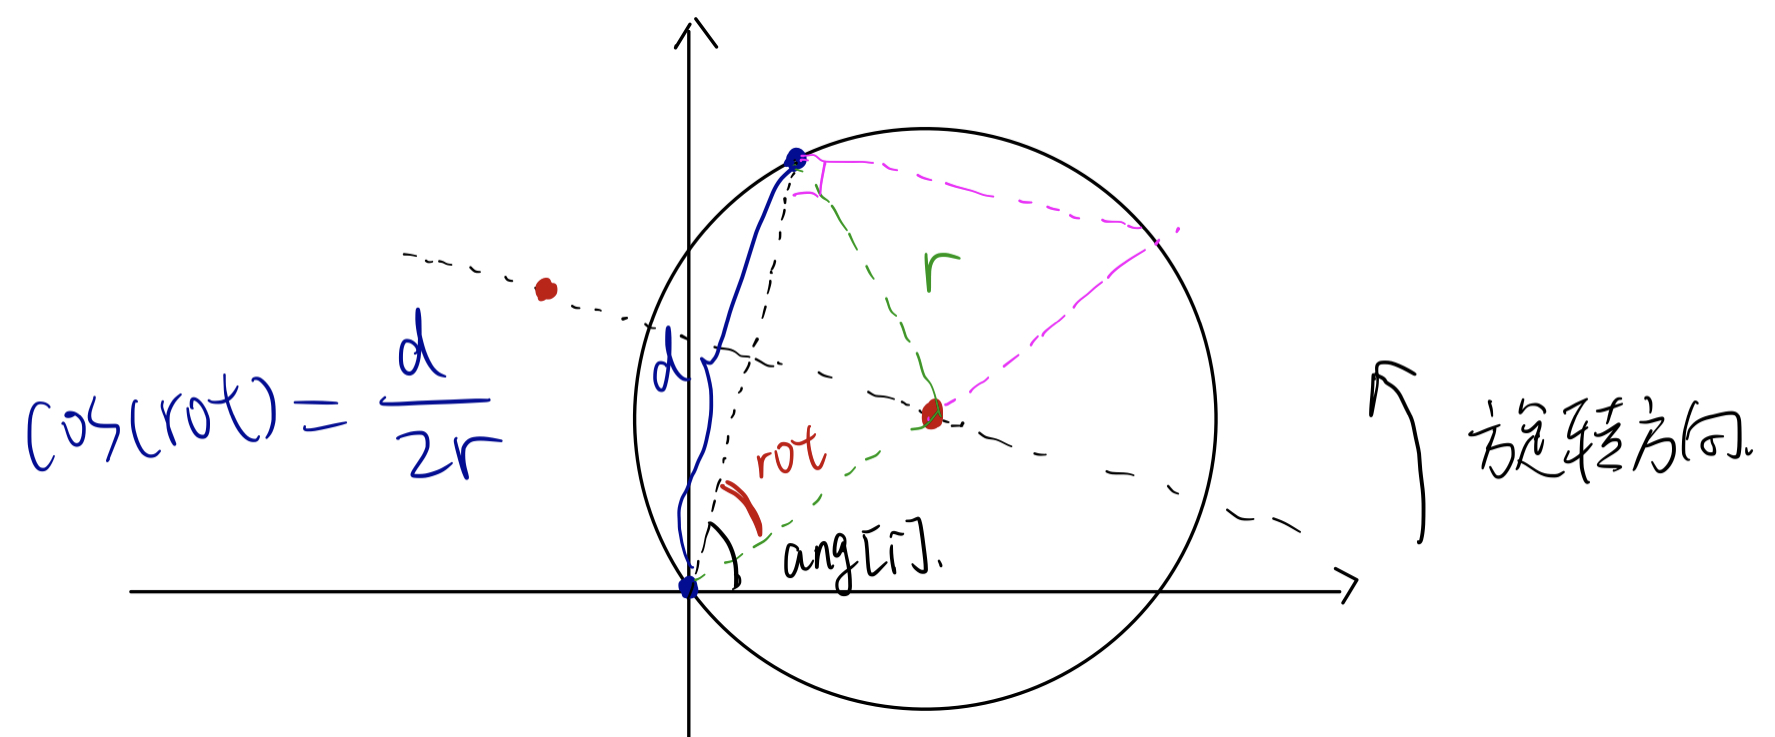 r
d
cos(rot) = d/2r
rot
ang[i].
旋转方向.